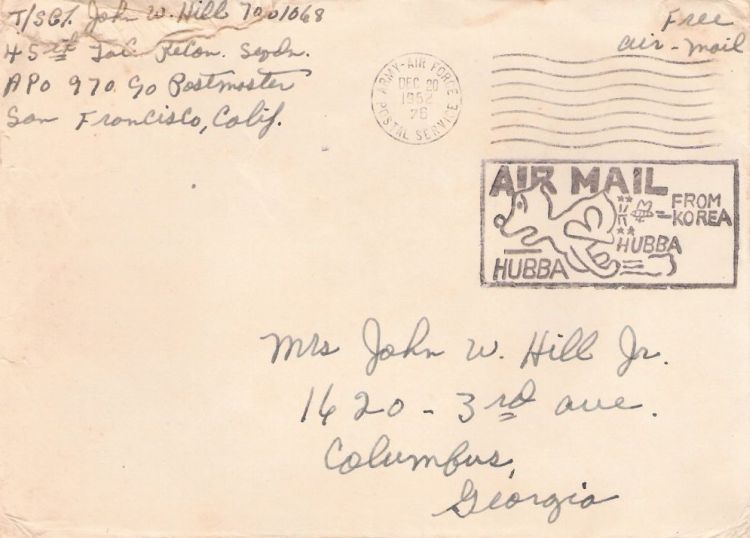 T/SGT. John W. Hill 7001068
45th Tac. Recon. Sqdn.
APO 970 % Postmaster
San Francisco, Calif.
Free
air-mail
ARMY-AIR FORCE
DEC 20
1952
76
POSTAL SERVICE
AIR MAIL
FROM
KOREA
HUBBA
HUBBA
Mrs John W. Hill Jr.
1620 - 3rd ave.
Columbus,
Georgia